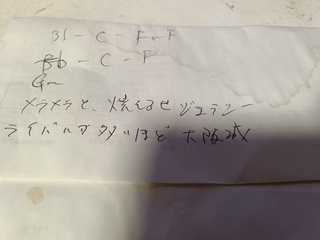 Bb - C - F - F
Bb - C - F
G~
メラメラと、燃えるぜジェラシー
ライバルは多いほど 大阪城